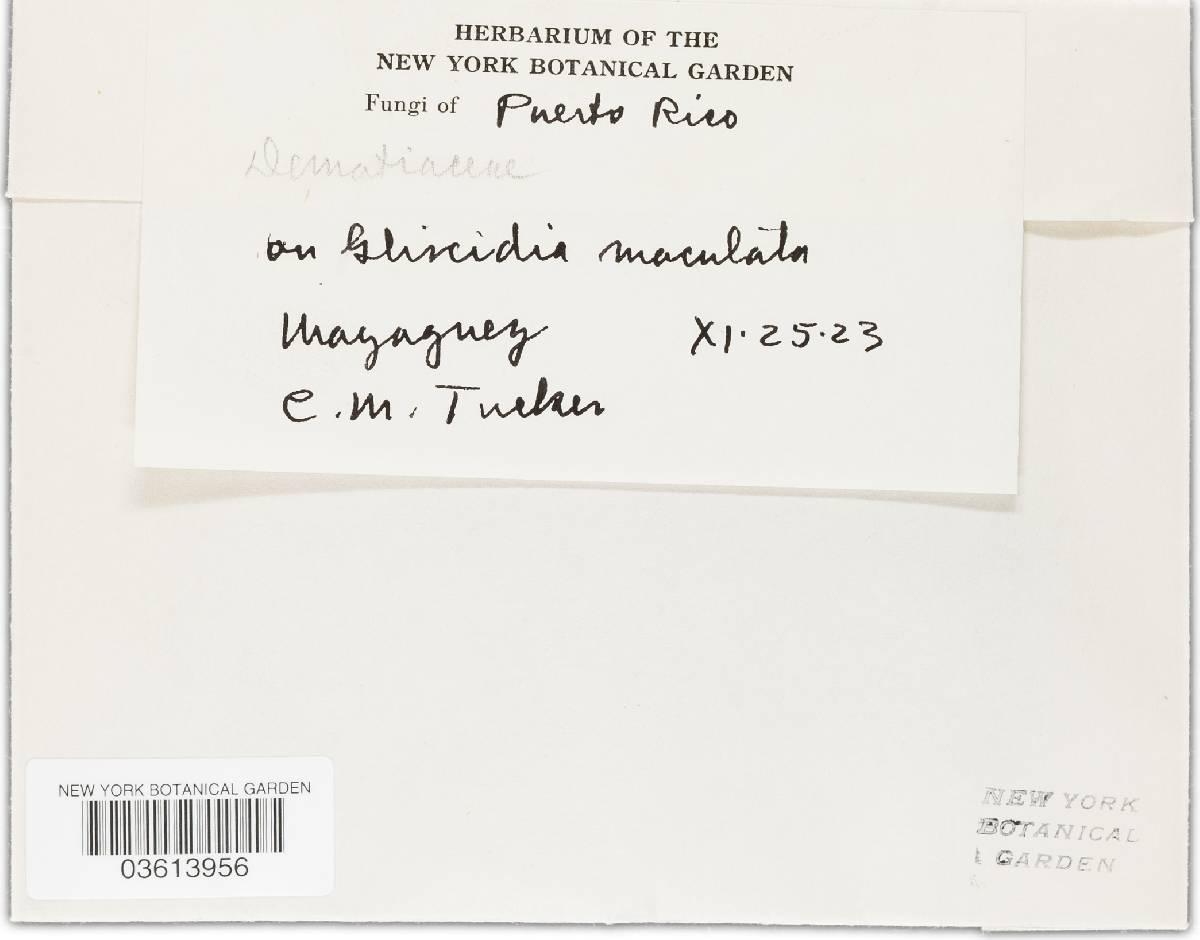 HERBARIUM OF THE
NEW YORK BOTANICAL GARDEN
Fungi of Puerto Rico
Dematiaceae
on Gliricidia maculata
Mayaguez XI·25·23
C. M. Tucker
NEW YORK BOTANICAL GARDEN
03613956
NEW YORK
BOTANICAL
GARDEN